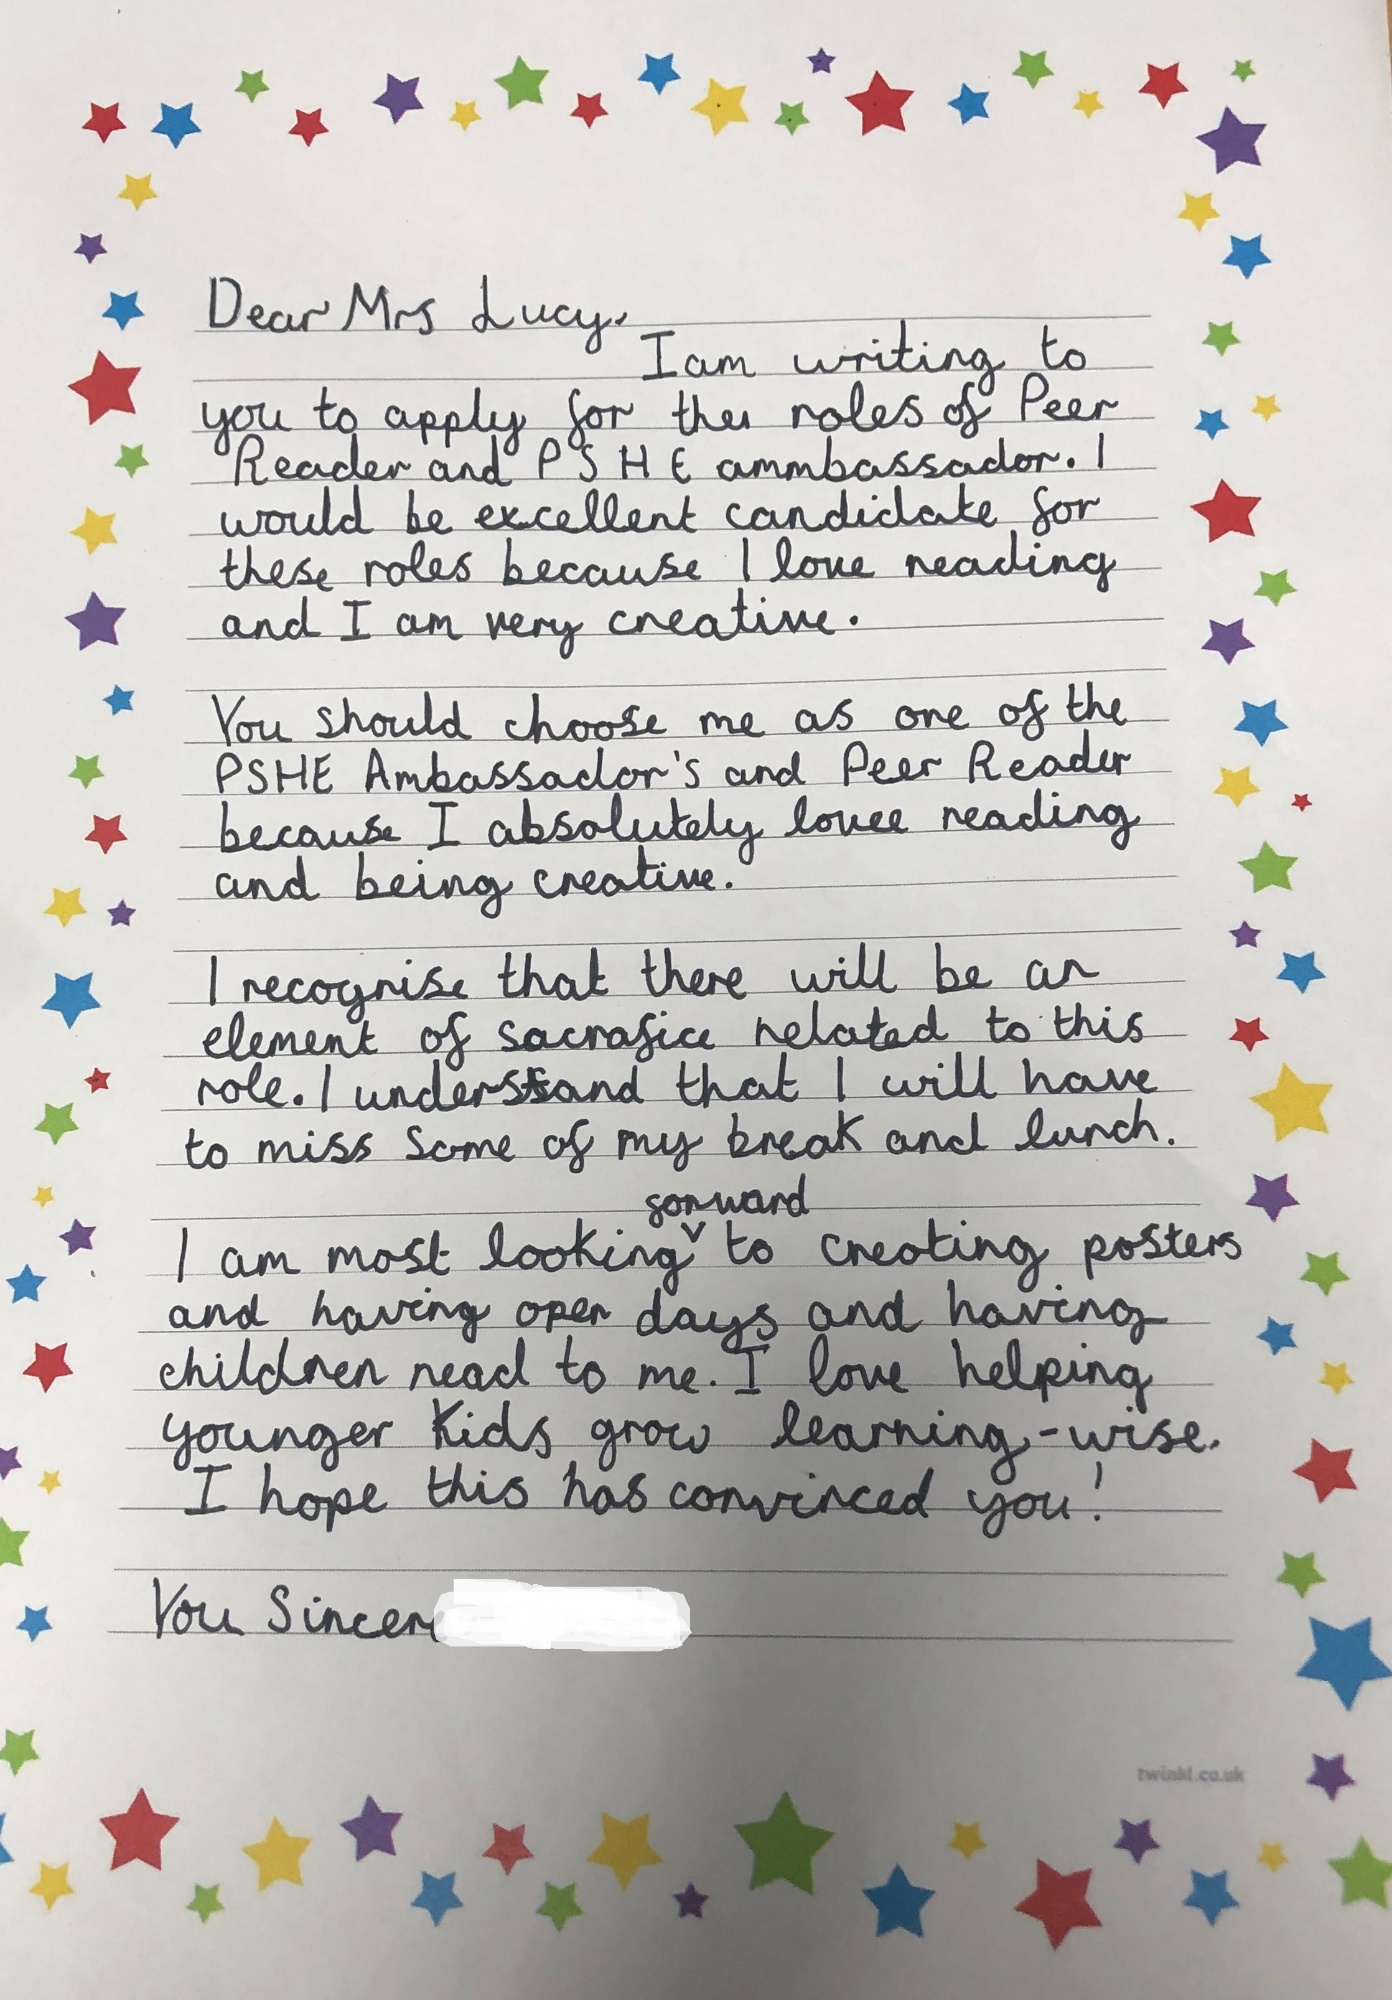 Dear Mrs Lucy,
I am writing to
you to apply for the roles of Peer
Reader and PSHE ammbassador. I
would be excellent candidate for
these roles because I love reading
and I am very creative.
You should choose me as one of the
PSHE Ambassador's and Peer Reader
because I absolutely lovee reading
and being creative.
I recognise that there will be an
element of sacrafice related to this
role. I understand that I will have
to miss some of my break and lunch.
forward
I am most looking to creating posters
and having open days and having
children read to me. I love helping
younger kids grow learning-wise.
I hope this has convinced you!
You Sincer
twinkl.co.uk